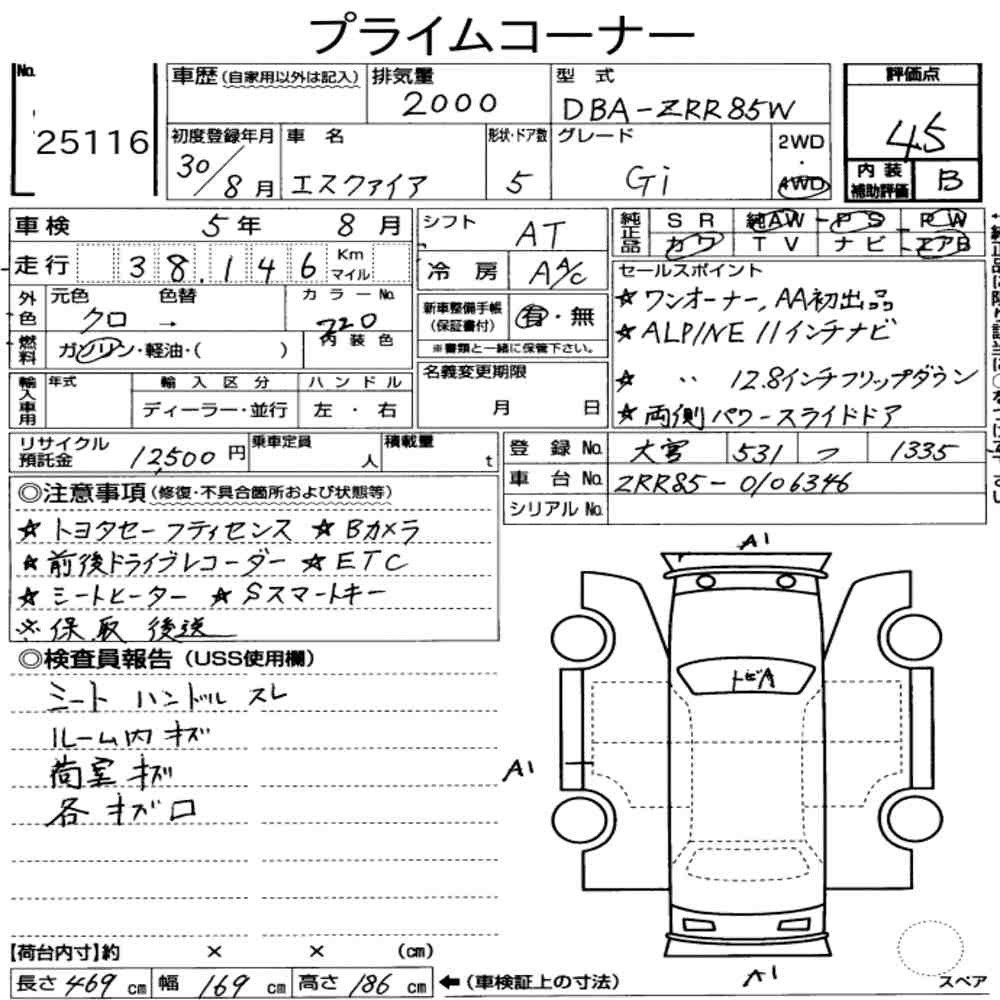 プライムコーナー
No. 25116
車歴(自家用以外は記入) 排気量 2000 型式 DBA-ZRR85W
初度登録年月 30/8月 車名 エスクァイア 形状・ドア数 5 グレード Gi 2WD・4WD
評価点 4.5
内装補助評価 B
車検 5年 8月
走行 38,146 Km マイル
外色 元色 クロ 色替 → カラーNo. 220 内装色
燃料 ガソリン・軽油・( )
輸入車用 年式 輸入区分 ディーラー・並行 ハンドル 左・右
シフト AT
冷房 AA/C
新車整備手帳(保証書付) 有・無
※書類と一緒に保管下さい。
名義変更期限 月 日
純正品 SR 純AW PS PW
カワ TV ナビ エアB
セールスポイント
☆ワンオーナー,AA初出品
☆ALPINE 11インチナビ
☆ 〃 12.8インチフリップダウン
☆両側パワースライドドア
リサイクル預託金 12,500円 乗車定員 人 積載量 t
登録No. 大宮 531 つ 1335
車台No. ZRR85-0106346
シリアルNo.
◎注意事項(修復・不具合箇所および状態等)
☆トヨタセーフティセンス ☆Bカメラ
☆前後ドライブレコーダー ☆ETC
☆シートヒーター ☆Sスマートキー
※保、取 後送
◎検査員報告(USS使用欄)
シート ハンドル スレ
ルーム内 キズ
荷室 キズ
各 キズ
A1
トビA
A1
A1
スペア
【荷台内寸】約 × × (cm)
長さ 469 cm 幅 169 cm 高さ 186 cm ←(車検証上の寸法)